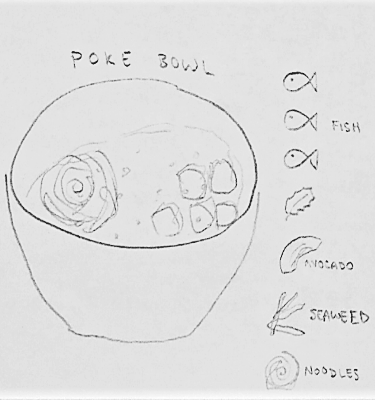 POKE BOWL
FISH
AVOCADO
SEAWEED
NOODLES